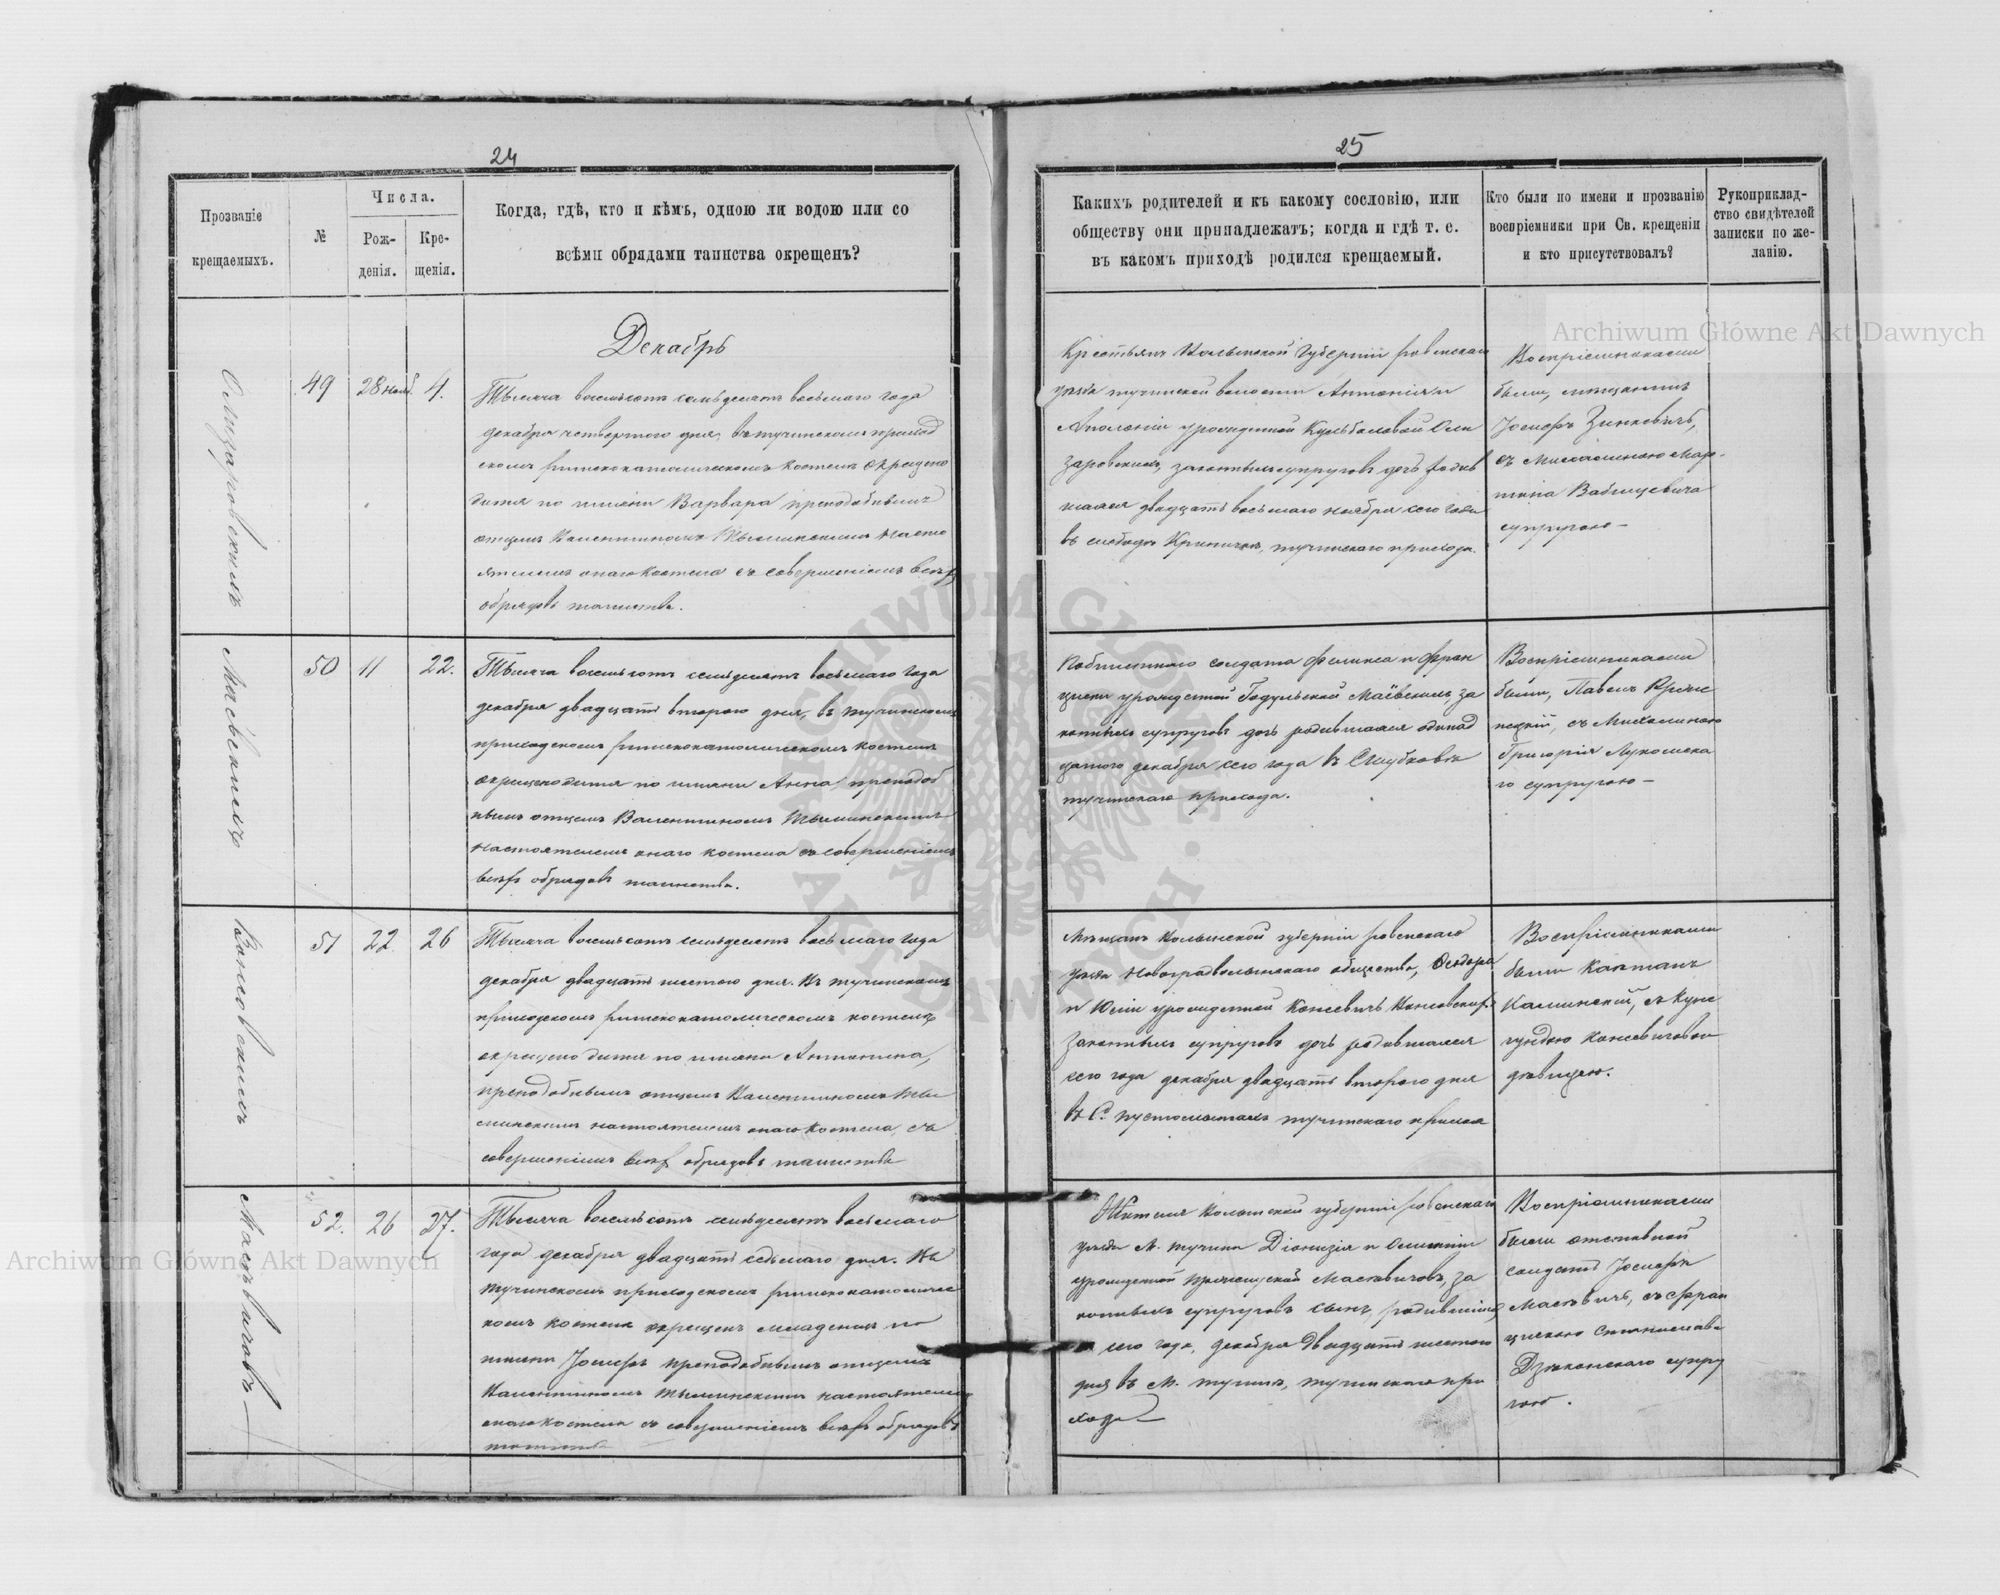 24
Прозваніе
крещаемыхъ.
№
Числа.
Рож-
денія.
Кре-
щенія.
Когда, гдѣ, кто и кѣмъ, одною ли водою или со
всѣми обрядами таинства окрещенъ?
Декабрь
49
28 нояб.
4.
Тысяча восемьсотъ семьдесятъ восьмаго года
декабря четвертого дня, въ тучинскомъ приход
скомъ римскокатолическомъ костелѣ окрещено
дитя по имени Варвара преподобнымъ
отцемъ Валентиномъ Тыминскимъ насто
ятелемъ онаго костела съ совершеніемъ всѣхъ
обрядовъ таинства.
Маевскихъ
50
11
22.
Тысяча восемьсотъ семьдесятъ восьмаго года
декабря двадцать второго дня, въ тучинскомъ
приходскомъ римскокатолическомъ костелѣ
окрещено дитя по имени Анна преподоб
нымъ отцемъ Валентиномъ Тыминскимъ
настоятелемъ онаго костела съ совершеніемъ
всѣхъ обрядовъ таинства.
51
22
26
Тысяча восемьсотъ семьдесятъ восьмаго года
декабря двадцать шестого дня. Въ тучинскомъ
приходскомъ римскокатолическомъ костелѣ
окрещено дитя по имени Антонина,
преподобнымъ отцемъ Валентиномъ Ты
минскимъ настоятелемъ онаго костела, съ
совершеніемъ всѣхъ обрядовъ таинства
52.
26
27.
Тысяча восемьсотъ семьдесятъ восьмаго
года декабря двадцать седьмаго дня. Въ
тучинскомъ приходскомъ римскокатоличес
комъ костелѣ окрещенъ младенецъ по
имени Іосифъ преподобнымъ отцемъ
Валентиномъ Тыминскимъ настоятелемъ
онаго костела съ совершеніемъ всѣхъ обрядовъ
таинства
25
Какихъ родителей и къ какому сословію, или
обществу они принадлежатъ; когда и гдѣ т. е.
въ какомъ приходѣ родился крещаемый.
Кто были по имени и прозванію
воспріемники при Св. крещеніи
и кто присутствовалъ?
Рукоприклад-
ство свидѣтелей
записки по же-
ланію.
Крестьянъ Волынской Губерніи ровенскаго
уѣзда тучинской волости Антонія и
Аполоніи урожденной
законныхъ супруговъ дочь родив
шаяся двадцать восьмаго ноября сего года
въ слободѣ Криничкѣ, тучинскаго прихода.
Воспріемниками
были, мѣщанинъ
Іосифъ Зинкевичъ,
съ Мар-
тина
супругою —
солдата Феликса и Фран
циски урожденной Маёвскихъ, за
конныхъ супруговъ дочь родившаяся одинад
цатого декабря сего года въ
тучинскаго прихода.
Воспріемниками
были, Павелъ
съ Михалиною
Григорія
го супругою —
Мѣщанъ Волынской губерніи ровенскаго
уѣзда Новоградволынскаго общества, Ѳеодора
и Юліи урожденной
законныхъ супруговъ дочь родившаяся
сего года декабря двадцать второго дня
въ С. пустомытахъ тучинскаго прихода
Воспріемниками
были Каэтанъ
Каминскій, съ Куне
гундою
дѣвицею.
Жителя Волынской губерніи ровенскаго
уѣзда М. тучина Діонизія и
урожденной за
конныхъ супруговъ сынъ, родившійся
сего года, декабря двадцать шестого
дня въ М. тучинѣ, тучинскаго при
хода —
Воспріемниками
были отставной
солдатъ Іосифъ
съ Фран
цискою Станислава
супру
гою.
Archiwum Główne Akt Dawnych
Archiwum Główne Akt Dawnych
ARCHIWUM GŁÓWNE AKT DAWNYCH